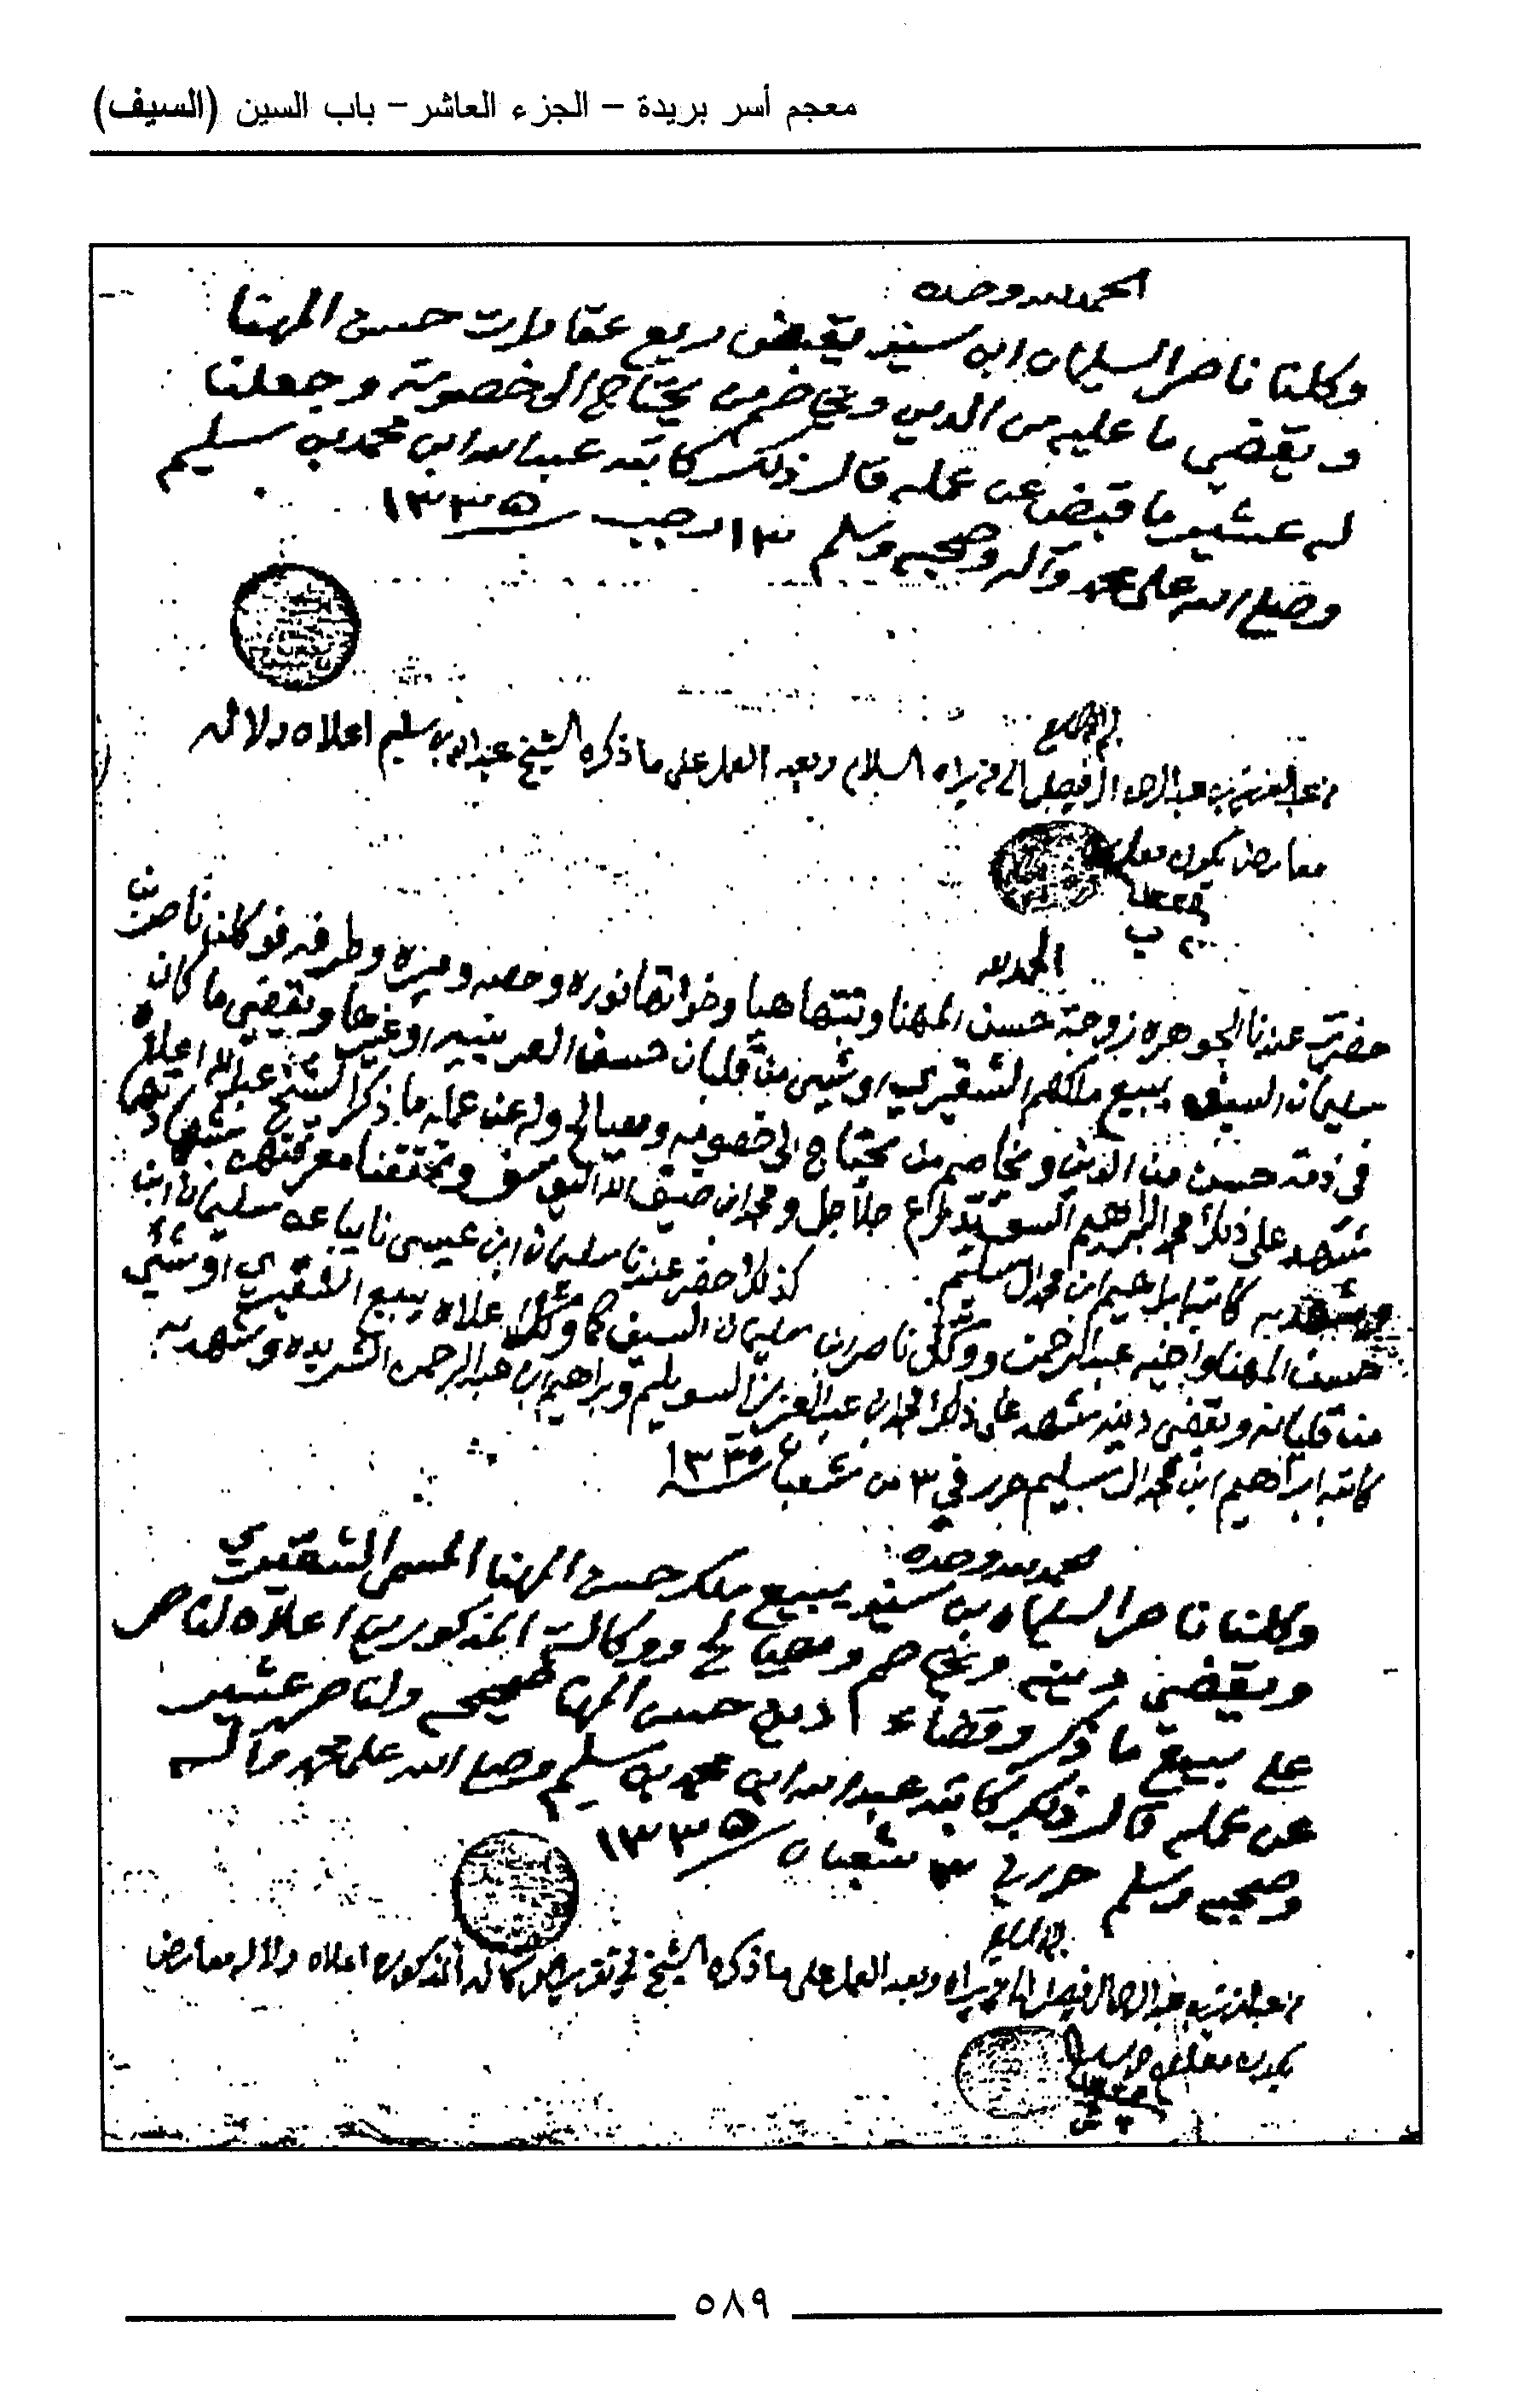 معجم أسر بريدة – الجزء العاشر – باب السين (السيف)
الحمد لله وحده
وكلنا ناصر السليمان ابن سيف يقبض ريع عقارات حسن المهنا
ويقضي ما عليه من الدين ويخاصم من يحتاج الى خصومته وجعلنا
له عشير ما قبض عن عمله قال ذلك كاتبه عبدالله ابن محمد بن سليم
وصلى الله على محمد وآله وصحبه وسلم ١٣ رجب ١٣٣٥
من عبدالعزيز بن عبدالرحمن الفيصل الى من يراه السلام وبعد العمل على ما ذكره الشيخ عبدالله بن سليم اعلاه ولا له
معارض يكون معلوم
١٣٣٥
الحمد لله
حضرت عندنا الجوهره زوجة حسن المهنا وبنتها هيا وخواتها نوره وحصه ومنيره وطرفه فوكلن ناصر ابن
سليمان السيف يبيع ملكهم الشقيري او شيء من قلبان حسن العرينيه او غيرها ويقضي ما كان
في ذمة حسن من الدين ويخاصم من يحتاج الى خصومه ويصالح وله عن عمله ما ذكر الشيخ عبدالله اعلاه
شهد على ذلك محمد البراهيم السويد راع جلاجل ومحمد ابن ضيف الله اليوسف وتحققنا معرفتهن بشهادتهما
وشهد به كاتبه ابراهيم ابن محمد ال سليم كذلك حضر عندنا سليمان ابن عيسى نايبا عن سليمان ابن
حسن المهنا واخيه عبدالرحمن ووكل ناصر ابن سليمان السيف كما وكل اعلاه يبيع الشقيري او شيء
من قلبانه ويقضي دينه شهد على ذلك محمد ابن عبدالعزيز السويلم وبراهيم ابن عبدالرحمن الشريده وشهد به
كاتبه ابراهيم ابن محمد ال سليم حرر في ٣ من شعبان ١٣٣٥
الحمد لله وحده
وكلنا ناصر السليمان بن سيف يبيع ملك حسن المهنا المسمى الشقيري
ويقضي دينه ويخاصم ويصالح ووكالة المذكورين اعلاه لناصر
على بيع ما ذكر وقضاء دين حسن المهنا صحيحه ولناصر عشير
عن عمله قال ذلك كاتبه عبدالله ابن محمد بن سليم وصلى الله على محمد وآله
وصحبه وسلم حرر في ٣ شعبان ١٣٣٥
من عبدالعزيز بن عبدالرحمن الفيصل الى من يراه وبعد العمل على ما ذكره الشيخ في تقرير وكالة المذكورين اعلاه ولا له معارض
يكون معلوم
٥٨٩